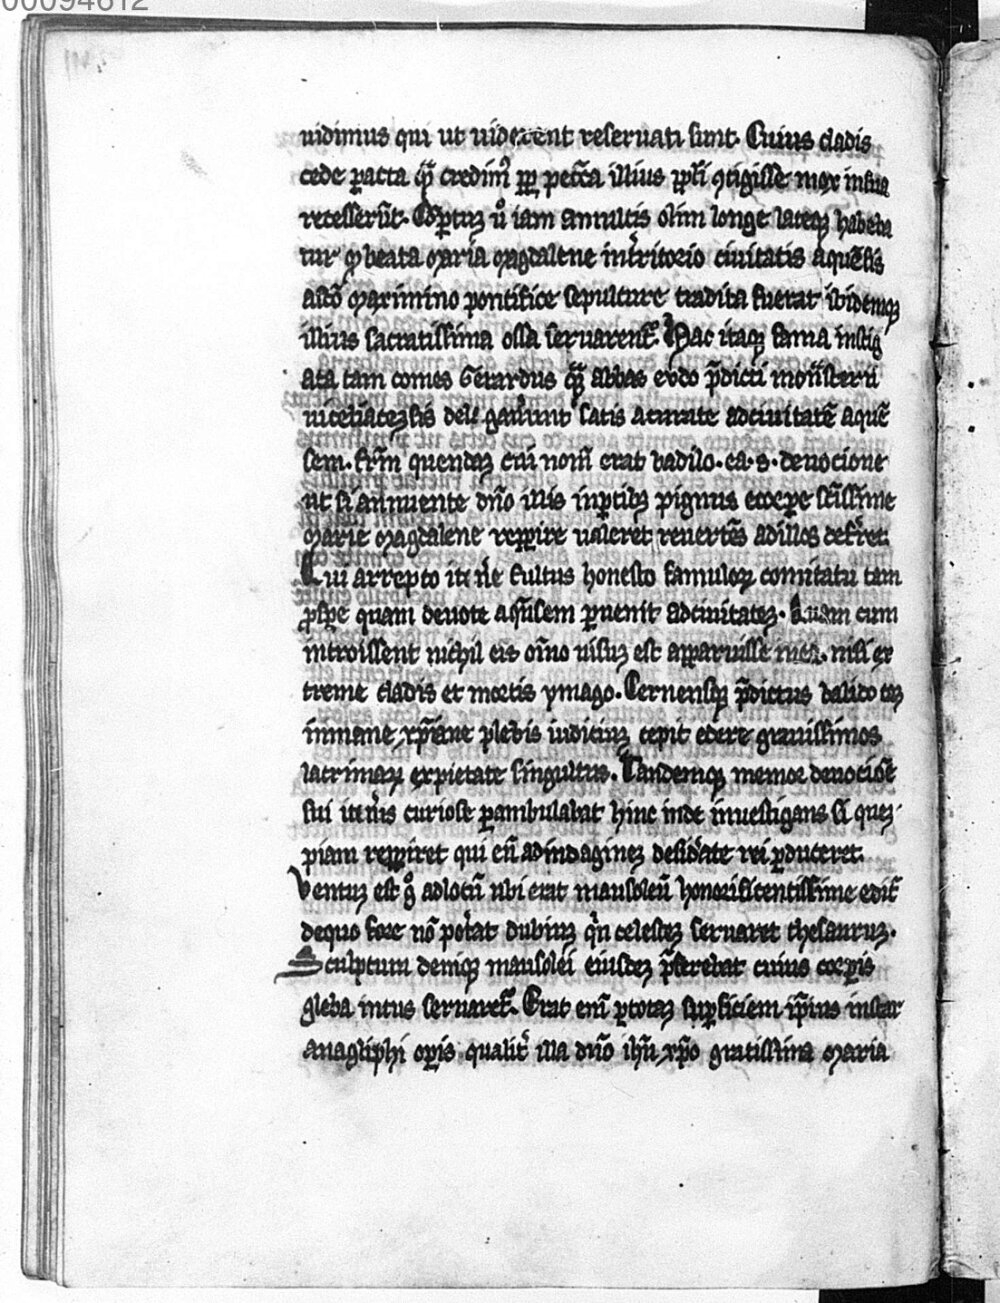 00094612
uidimus qui ut uiderent reseruati sunt. Cuius cladis
cede ꝑacta qͣ̄ credimꝰ ꝓpt̾ pecc̄a illius ppl̄i ꝯtigisse mox in sua
recesserūt. Coꝑtuꝫ u̾o iam a multis olim longe lateqꝫ habeba
tur qđ beata maria magdalene in t̾ritorio ciuitatis aquēsis
a sc̄o maximino pontifice sepulture tradita fuerat ibidemqꝫ
illius sacratissima ossa seruarent᷑. Hac itaqꝫ fama instig
ata tam comes Gerardus qͣ̄ abbas eudo p̄dicti mon̄sterii
uiceliacensis satis acurate ad ciuitatē aquē
sem. frēm quendaꝫ cui nom̄ erat badilo. ea. s. deuocione
ut si annuente dn̄o illis in ꝑtibꝫ pignus corꝑe sc̄issime
marie magdalene reꝑpire ualeret reuertēs ad illos defr̾ret.
Qui arrepto itin̾e fultus honesto famuloꝝ comitatu tam
ꝓspe quam deuote aq̄nsem ꝑuenit ad ciuitateꝫ. Quam cum
introissent nichil eis oīno uisuꝫ est apparuisse in ea. nisi ex
treme cladis et mortis ymago. Cernensqꝫ p̄dictus balido taꝫ
inmane xp̄iane plebis iudiciuꝫ cepit edere grauissimos
lacrimaꝝ ex pietate singultus. Tandemqꝫ memor deuociōe
sui itin̾is curiose ꝑambulabat hinc inde inuestigans si queꝫ
piam repp̄iret qui eū ad indagineꝫ desid̾ate rei ꝑduceret.
Ventuꝫ est gͦ ad locū ubi erat mausoleū honorificentissime edit᷑
de quo fore nō pot̾at dubiuꝫ qͥn celesteꝫ seruaret thesauruꝫ.
Sculptum deniqꝫ mausolei eiusdeꝫ p̄ferebat cuius corꝑis
gleba intus seruaret᷑. Erat eni᷑ ꝑ totaꝫ suꝑficiem ip̄ius instar
anagliphi opis qualit̾ illa dn̄o ihū xp̄o gratissima maria